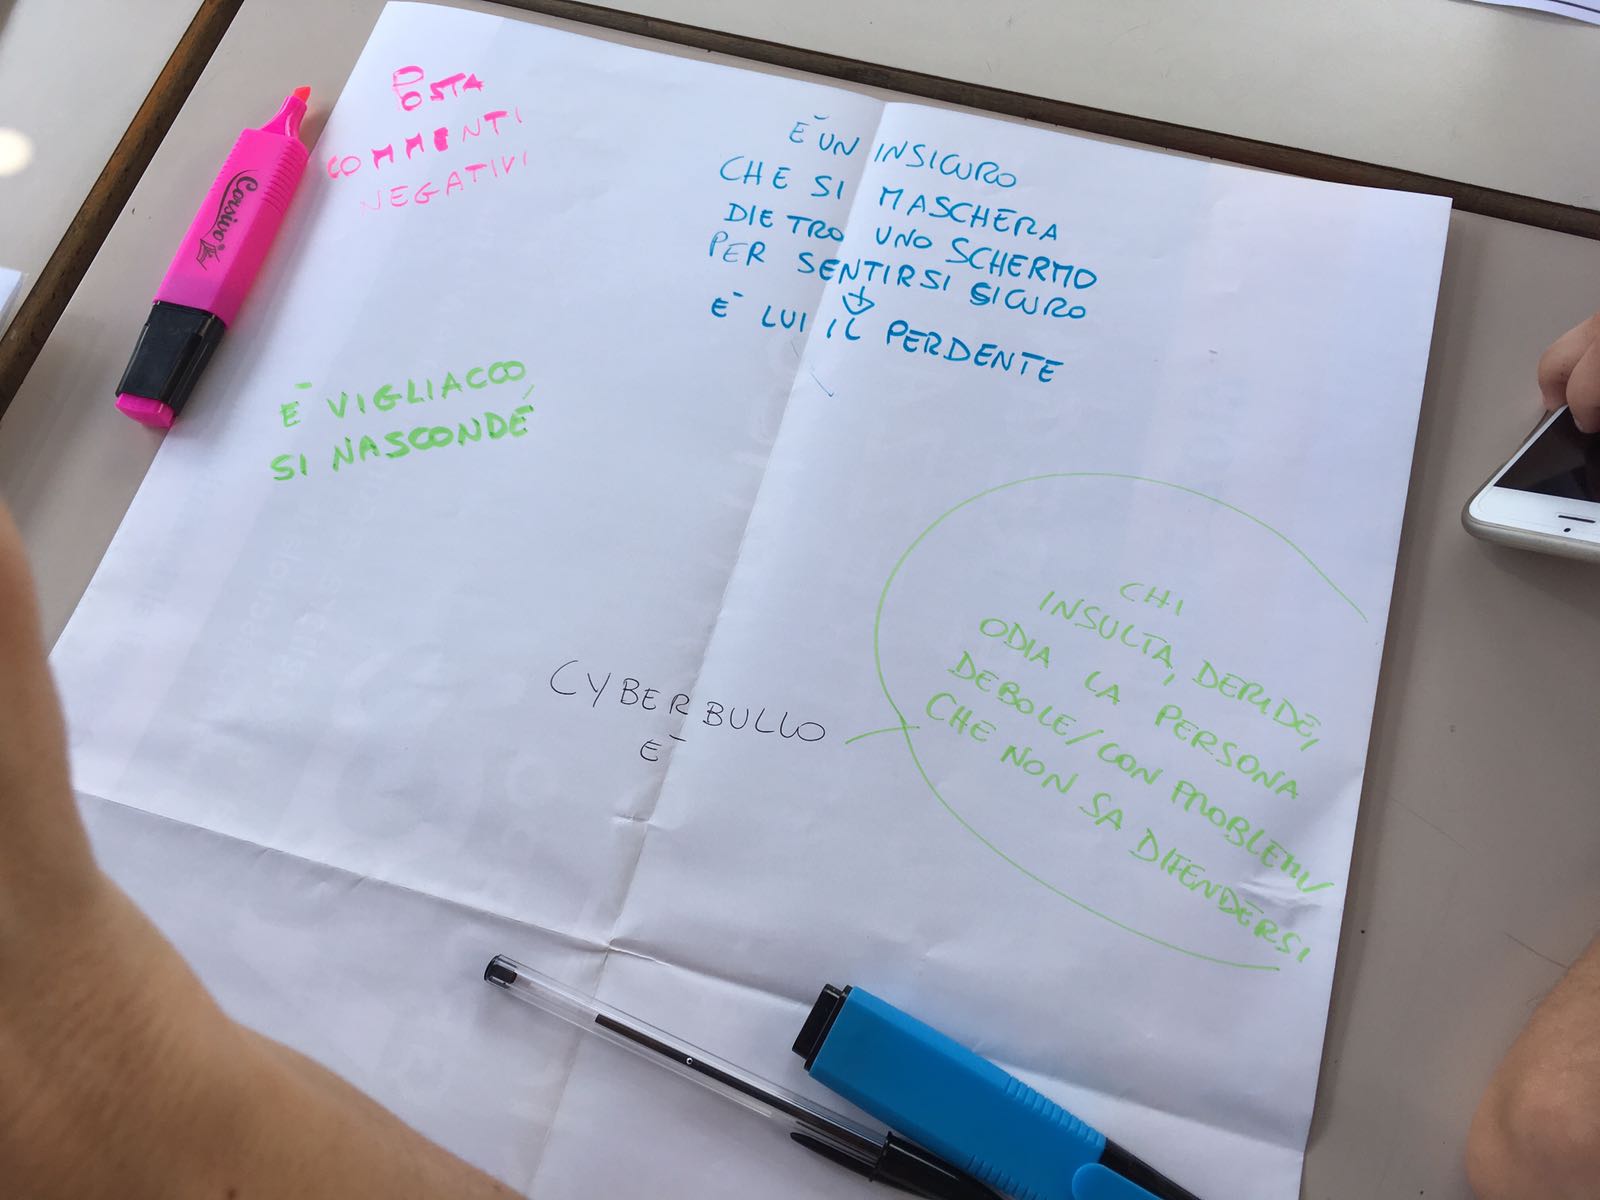 POSTA
COMMENTI
NEGATIVI
Corsivo
È UN INSICURO
CHE SI MASCHERA
DIETRO UNO SCHERMO
PER SENTIRSI SICURO
È LUI IL PERDENTE
È VIGLIACCO,
SI NASCONDE
CYBERBULLO
È
CHI
INSULTA, DERIDE,
ODIA LA PERSONA
DEBOLE/CON PROBLEMI/
CHE NON SA DIFENDERSI